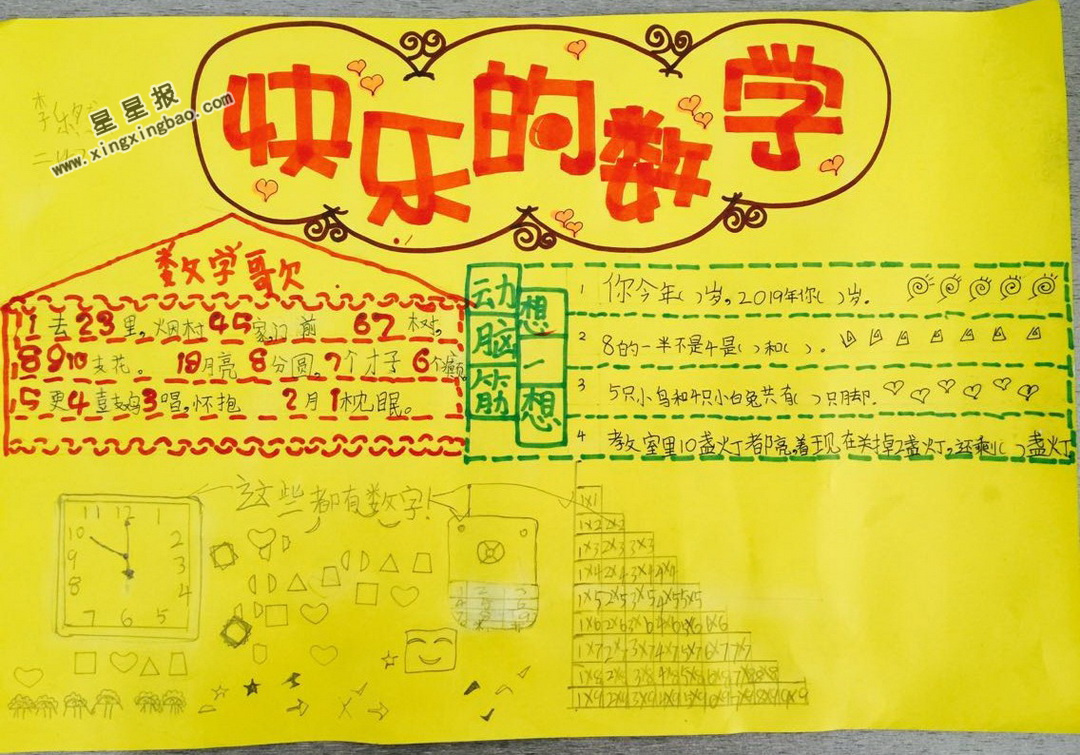 快乐的数学
星星报
www.xingxingbao.com
数学歌
1去23里,烟村45家,门前67树,
8910支花。18月亮8分圆,7个才子6个癫,
5更4鼓3唱,怀抱2月1枕眠。
动脑筋
想一想
1 你今年( )岁,2019年你( )岁.
2 8的一半不是4是( )和( ).
3 5只小鸟和4只小白兔共有( )只脚.
4 教室里10盏灯都亮着现在关掉2盏灯,还剩( )盏灯
这些都有数字!
11 12 1
10 2
9 3
8 4
7 6 5
1×1
1×2 2×2
1×3 2×3 3×3
1×4 2×4 3×4 4×4
1×5 2×5 3×5 4×5 5×5
1×6 2×6 3×6 4×6 5×6 6×6
1×7 2×7 3×7 4×7 5×7 6×7 7×7
1×8 2×8 3×8 4×8 5×8 6×8 7×8 8×8
1×9 2×9 3×9 4×9 5×9 6×9 7×9 8×9 9×9